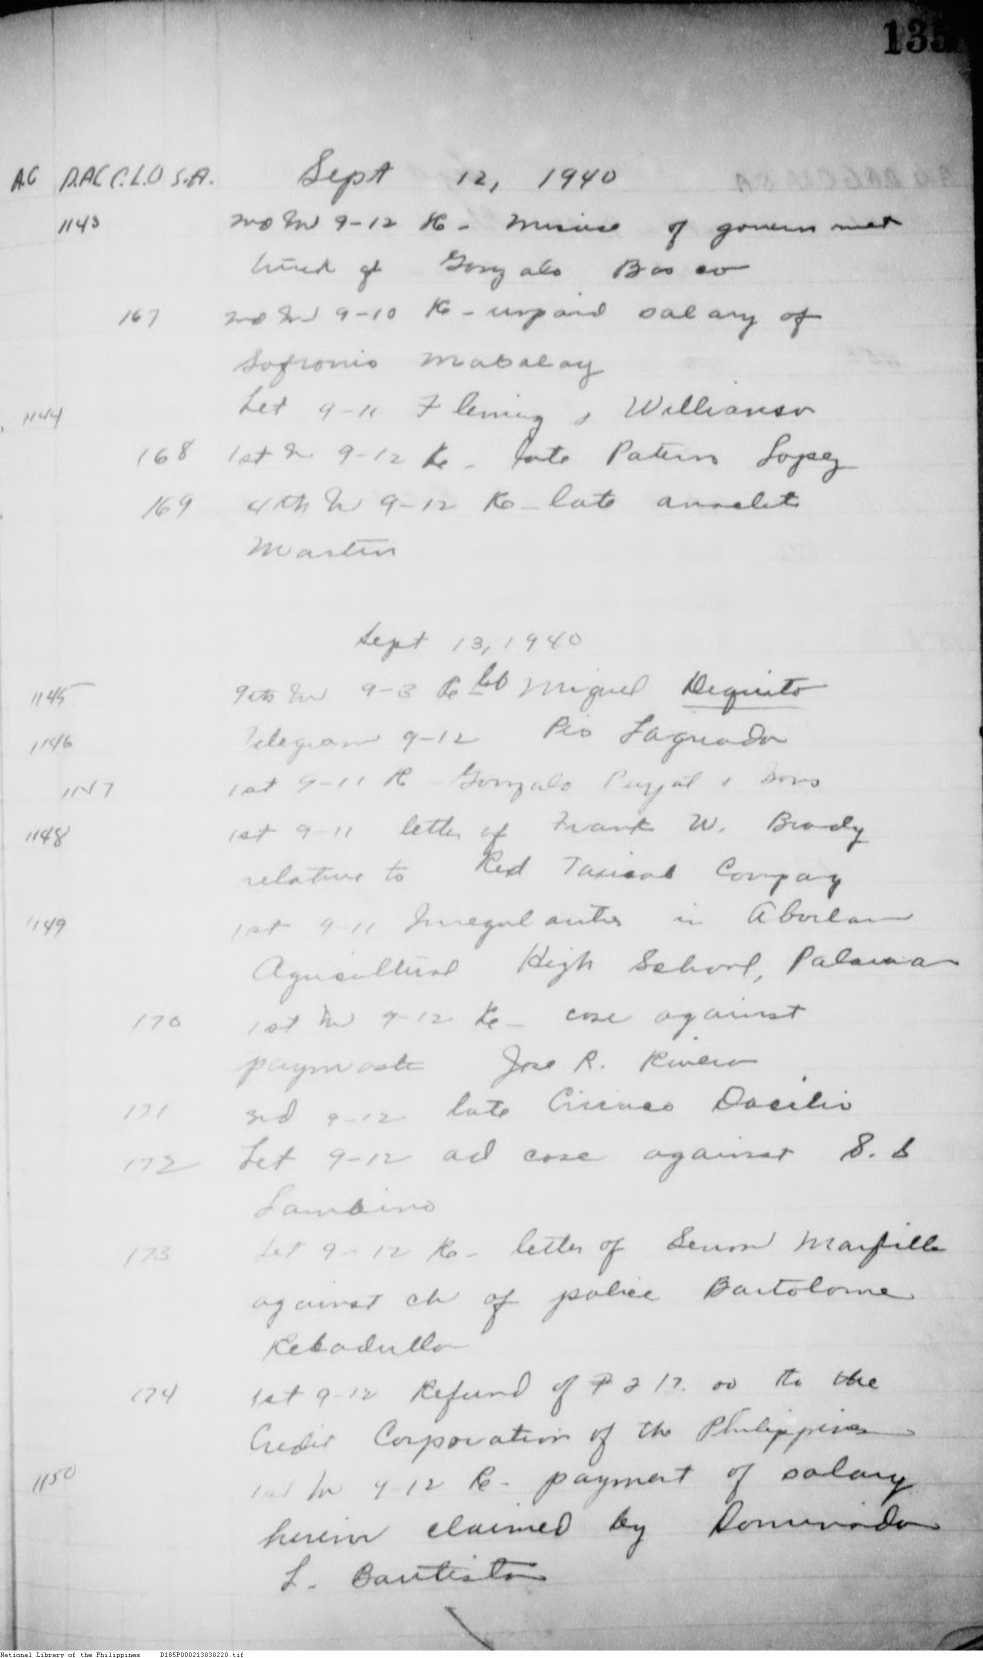 135
A.G D.AG C.L.O S.A. Sept 12, 1940
1143 2nd In 9-12 Re - misuse of government
truck of Gonzalo Bosco
167 2nd In 9-10 Re - unpaid salary of
Sofronio Mabalay
1144 Let 9-11 Fleming & Williamson
168 1st In 9-12 Re - late Paterno Lopez
169 4th In 9-12 Re - late Anaclet
Martin
Sept 13, 1940
1145 9th In 9-3 Re Miguel Dequito
1146 Telegram 9-12 Pio Laguador
1147 1st 9-11 R Gonzalo Puyat & Sons
1148 1st 9-11 letter of Frank W. Brady
relative to Red Taxicab Company
1149 1st 9-11 Irregularities in Aborlan
Agricultural High School, Palawan
170 1st In 9-12 Re - case against
paymaster Jose R. Rivera
171 3rd 9-12 late Ciriaco Dacilio
172 Let 9-12 ad case against S. S
Lambino
173 Let 9-12 Re - letter of Senon Marfilla
against ch of police Bartolome
Rebadulla
174 1st 9-12 Refund of ₱217.00 to the
Credit Corporation of the Philippines
1150 In 9-12 Re - payment of salary
herein claimed by Dominador
L. Bautista
National Library of the Philippines D185P000213838220.tif